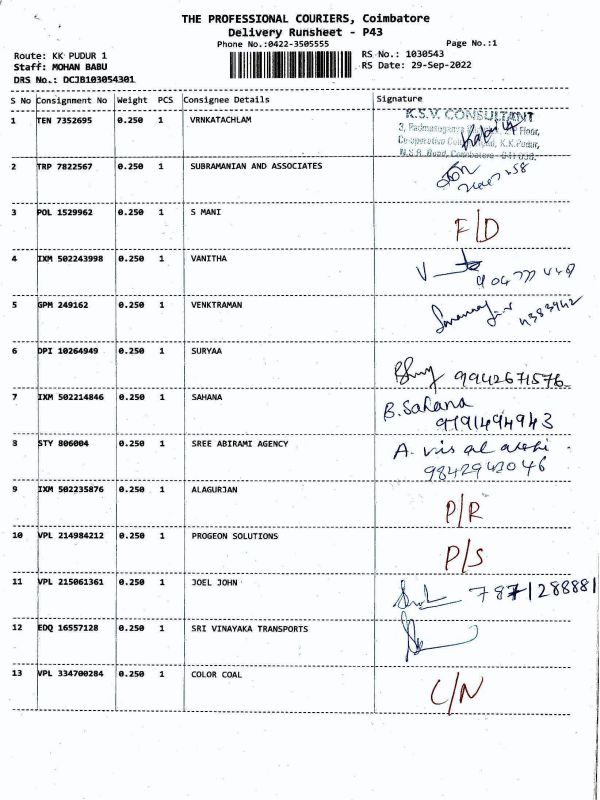 THE PROFESSIONAL COURIERS, Coimbatore
Delivery Runsheet - P43
Phone No.:0422-3505555 Page No.:1
Route: KK PUDUR 1 RS No.: 1030543
Staff: MOHAN BABU RS Date: 29-Sep-2022
DRS No.: DCJB103054301
S No Consignment No Weight PCS Consignee Details Signature
1 TEN 7352695 0.250 1 VRNKATACHLAM K.S.V. CONSULTANT
Floor,
K.K.Pudur,
N.S.R. Road, Coimbatore
2 TRP 7822567 0.250 1 SUBRAMANIAN AND ASSOCIATES
3 POL 1529962 0.250 1 S MANI F/D
4 IXM 502243998 0.250 1 VANITHA V
5 GPM 249162 0.250 1 VENKTRAMAN
6 DPI 10264949 0.250 1 SURYAA 9942671576
7 IXM 502214846 0.250 1 SAHANA B. Sahana
9191494943
8 STY 806004 0.250 1 SREE ABIRAMI AGENCY A.
9842943046
9 IXM 502235876 0.250 1 ALAGURJAN P/R
10 VPL 214984212 0.250 1 PROGEON SOLUTIONS P/S
11 VPL 215061361 0.250 1 JOEL JOHN 7871288881
12 EDQ 16557128 0.250 1 SRI VINAYAKA TRANSPORTS
13 VPL 334700284 0.250 1 COLOR COAL C/N